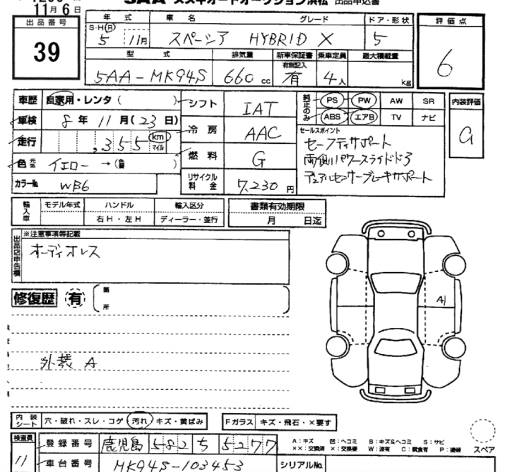 11月6日
SAA スズキオートオークション浜松 出品申込書
出品番号 39
年式 車名 グレード ドア・形状 評価点
S・H・Ⓡ 5 11月 スペーシア HYBRID X 5 6
型式 排気量 新車保証書 乗車定員 最大積載量
有無記入
5AA-MK94S 660cc 有 4人 kg
車歴 自家用・レンタ( ) シフト IAT PS PW AW SR 内装評価
車検 8年11月(23日) 冷房 AAC ABS エアB TV ナビ a
走行 ,355 km マイル 燃料 G セールスポイント
セーフティサポート
両側パワースライドドア
デュアルセンサーブレーキサポート
色 イエロー→( )
カラーNo. WB6 リサイクル料金 7,230円
輸入車 モデル年式 ハンドル 輸入区分 書類有効期限
右H・左H ディーラー・並行 月 日迄
※注意事項等記載
オーディオレス
修復歴 有 箇所
A1
外装 A
内装シート 穴・破れ・スレ・コゲ 汚れ キズ・黄ばみ Fガラス キズ・飛石・×要す
検査員 11
登録番号 鹿児島 582 ち 5277
A:キズ 凹:ヘコミ B:キズ&ヘコミ S:サビ
××:交換済 ×:交換要 W:波有 C:腐食有 P:塗褪 スペア
車台番号 MK94S-103453 シリアルNo.